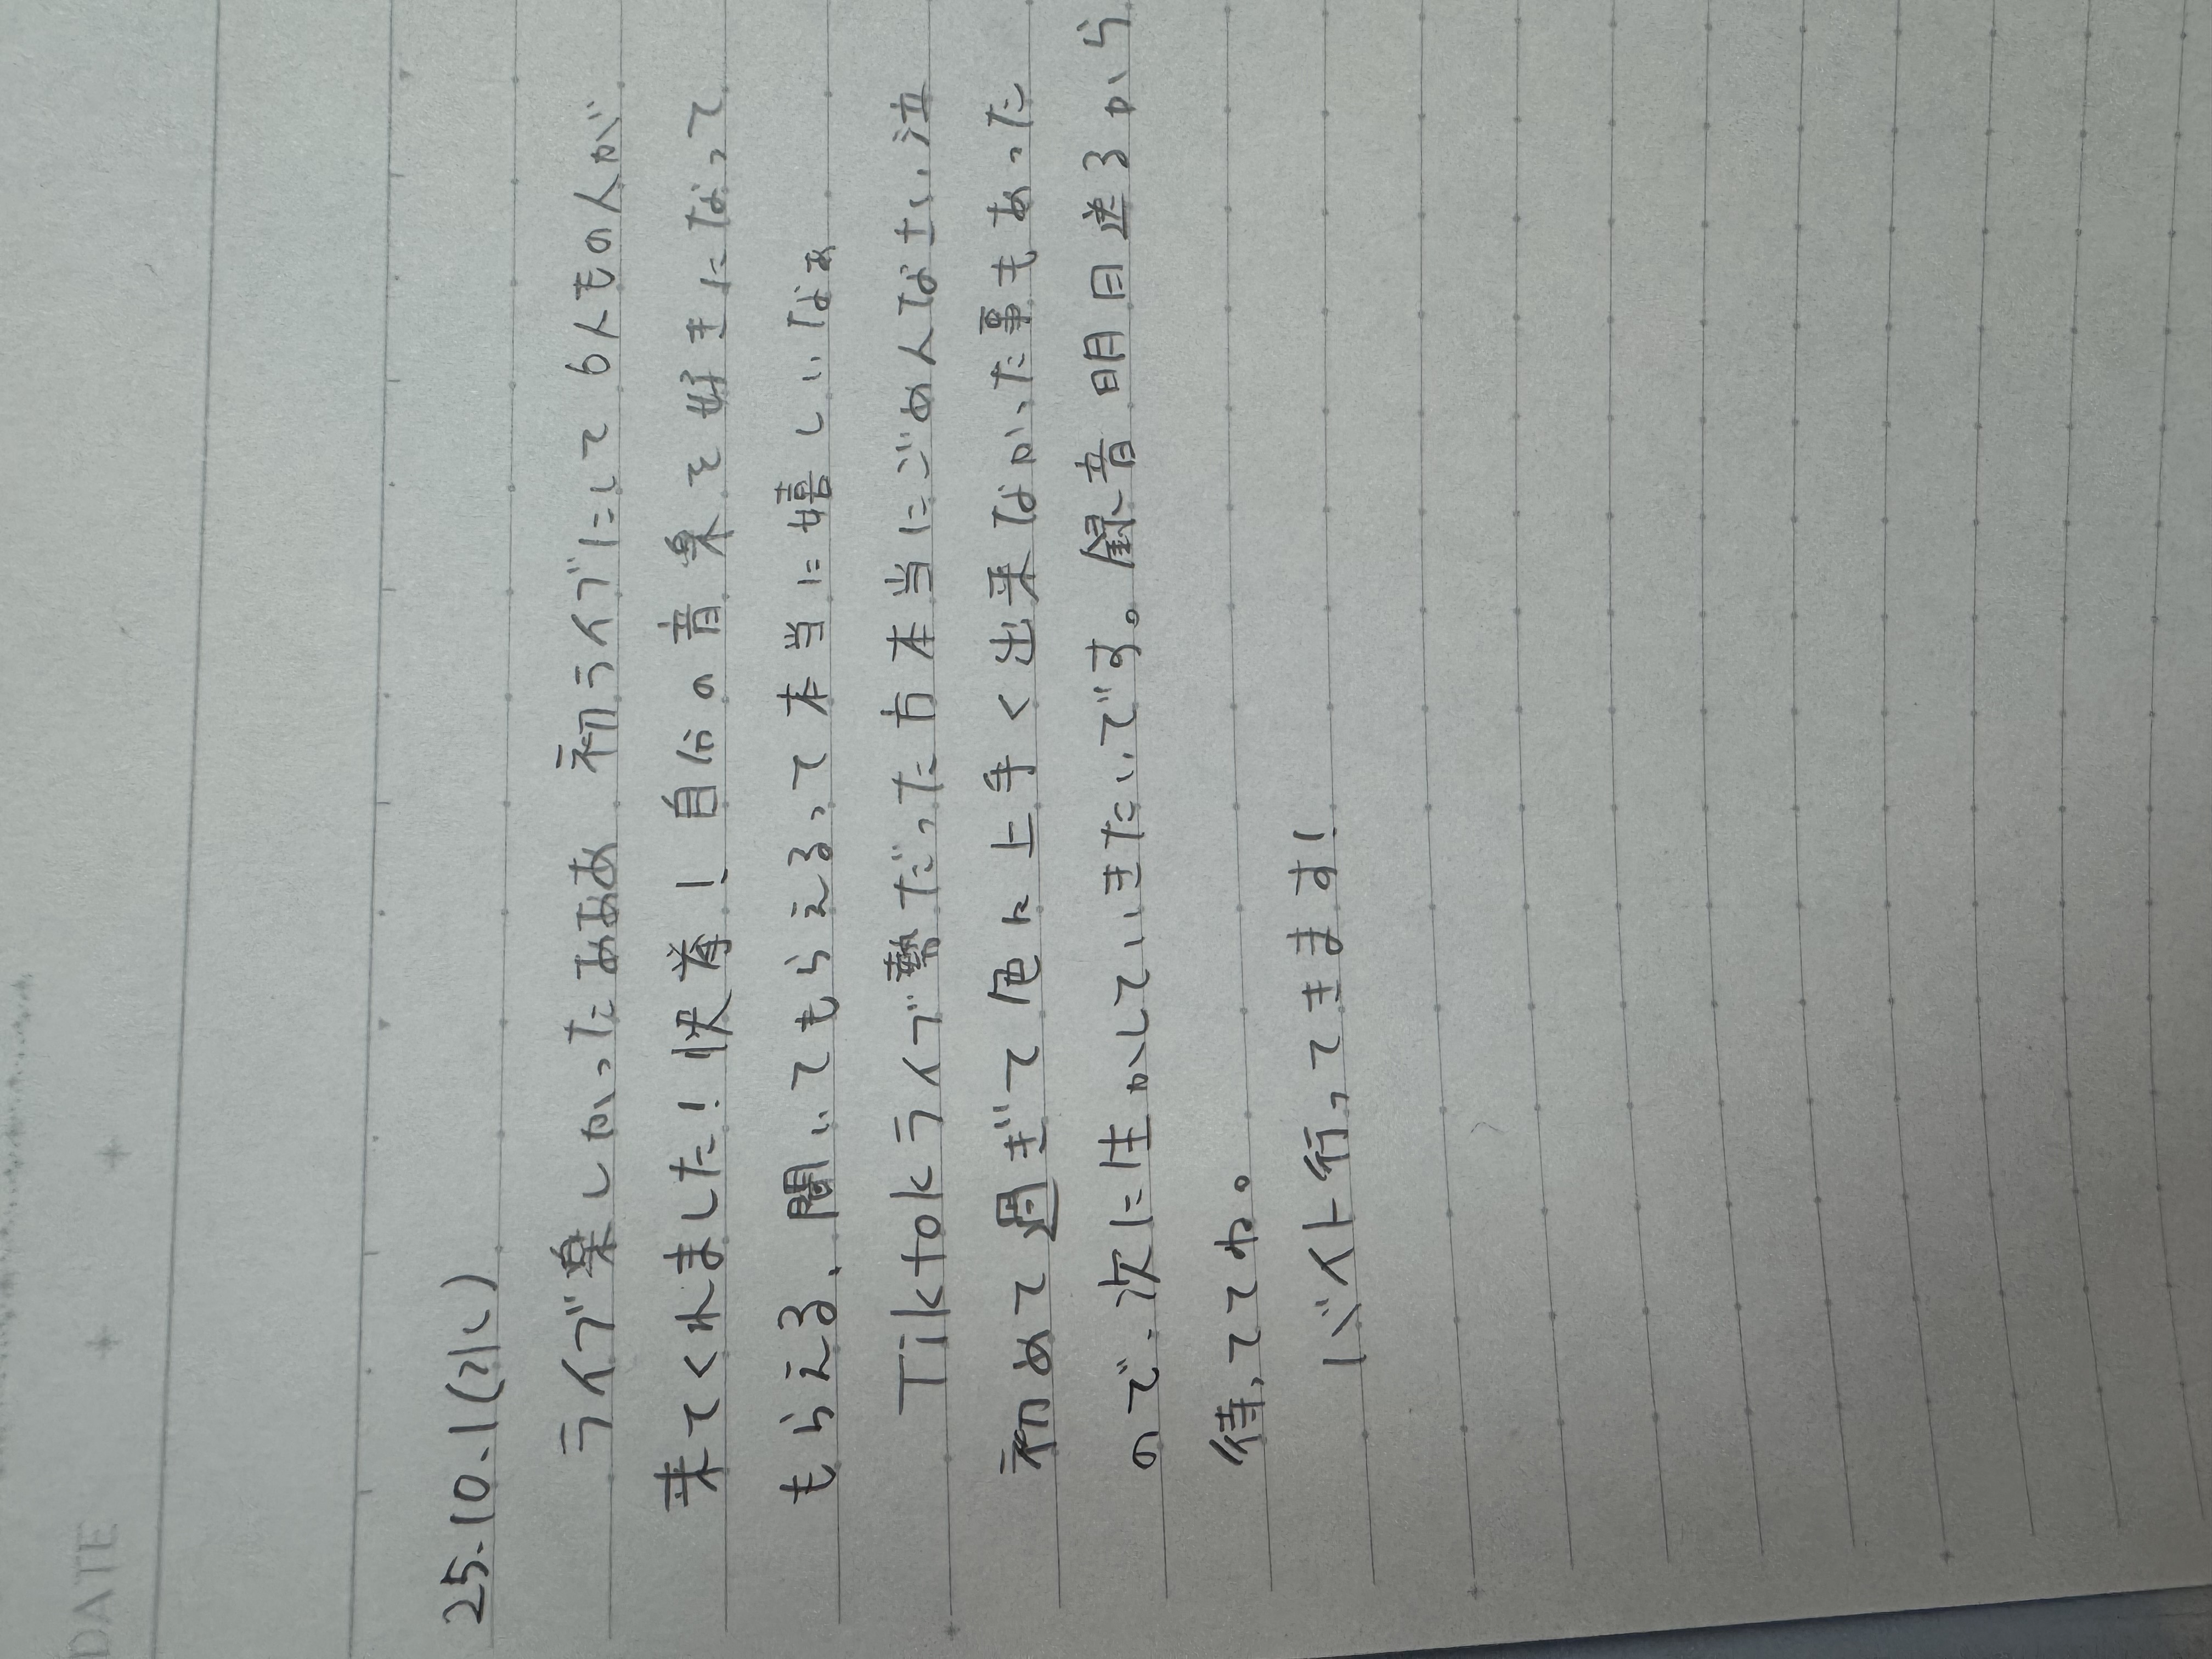 DATE
25.10.1(水)
ライブ楽しかったあああ 初ライブにして6人もの人が
来てくれました！快挙！自分の音楽を好きになって
もらえる、聞いてもらえるって本当に嬉しいなぁ
Tiktokライブ勢だった方本当にごめんなさい泣
初めて過ぎて色々上手く出来なかった事もあった
ので、次に生かしていきたいです。録音明日送るから
待っててね。
バイト行ってきます！